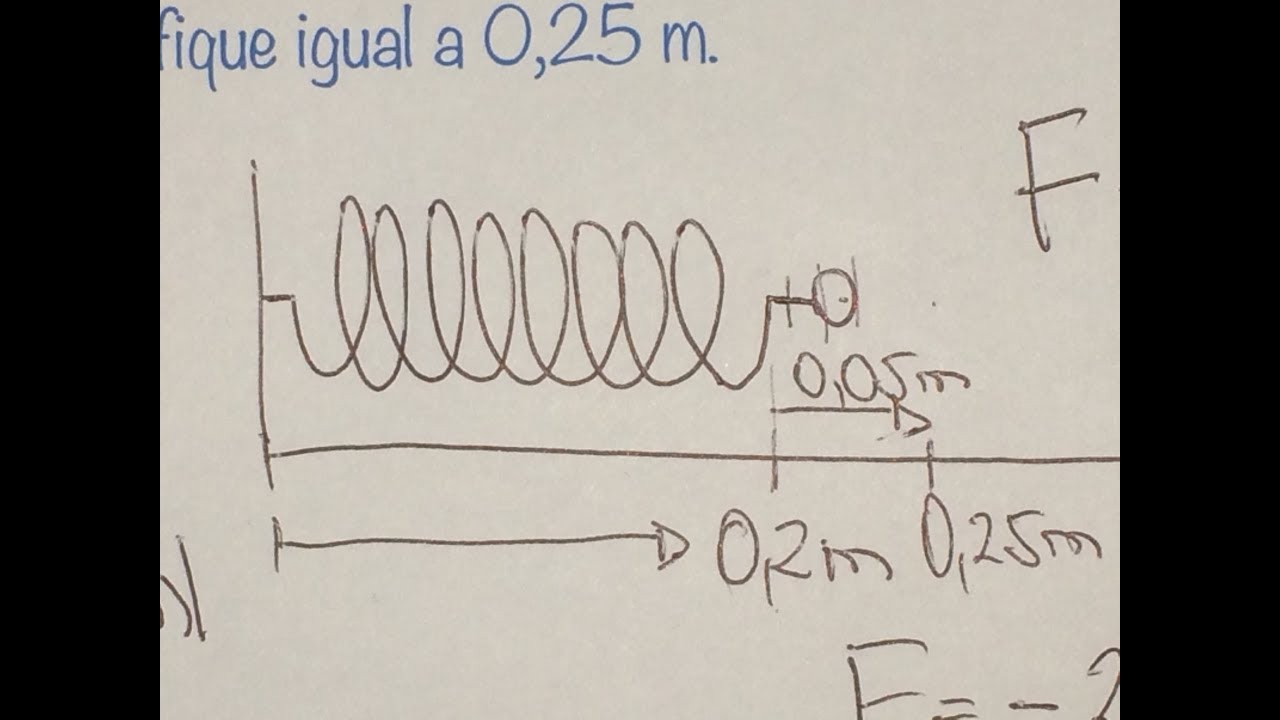 fique igual a 0,25 m.
F
0,05m
0,2m 0,25m
N
F = - 2